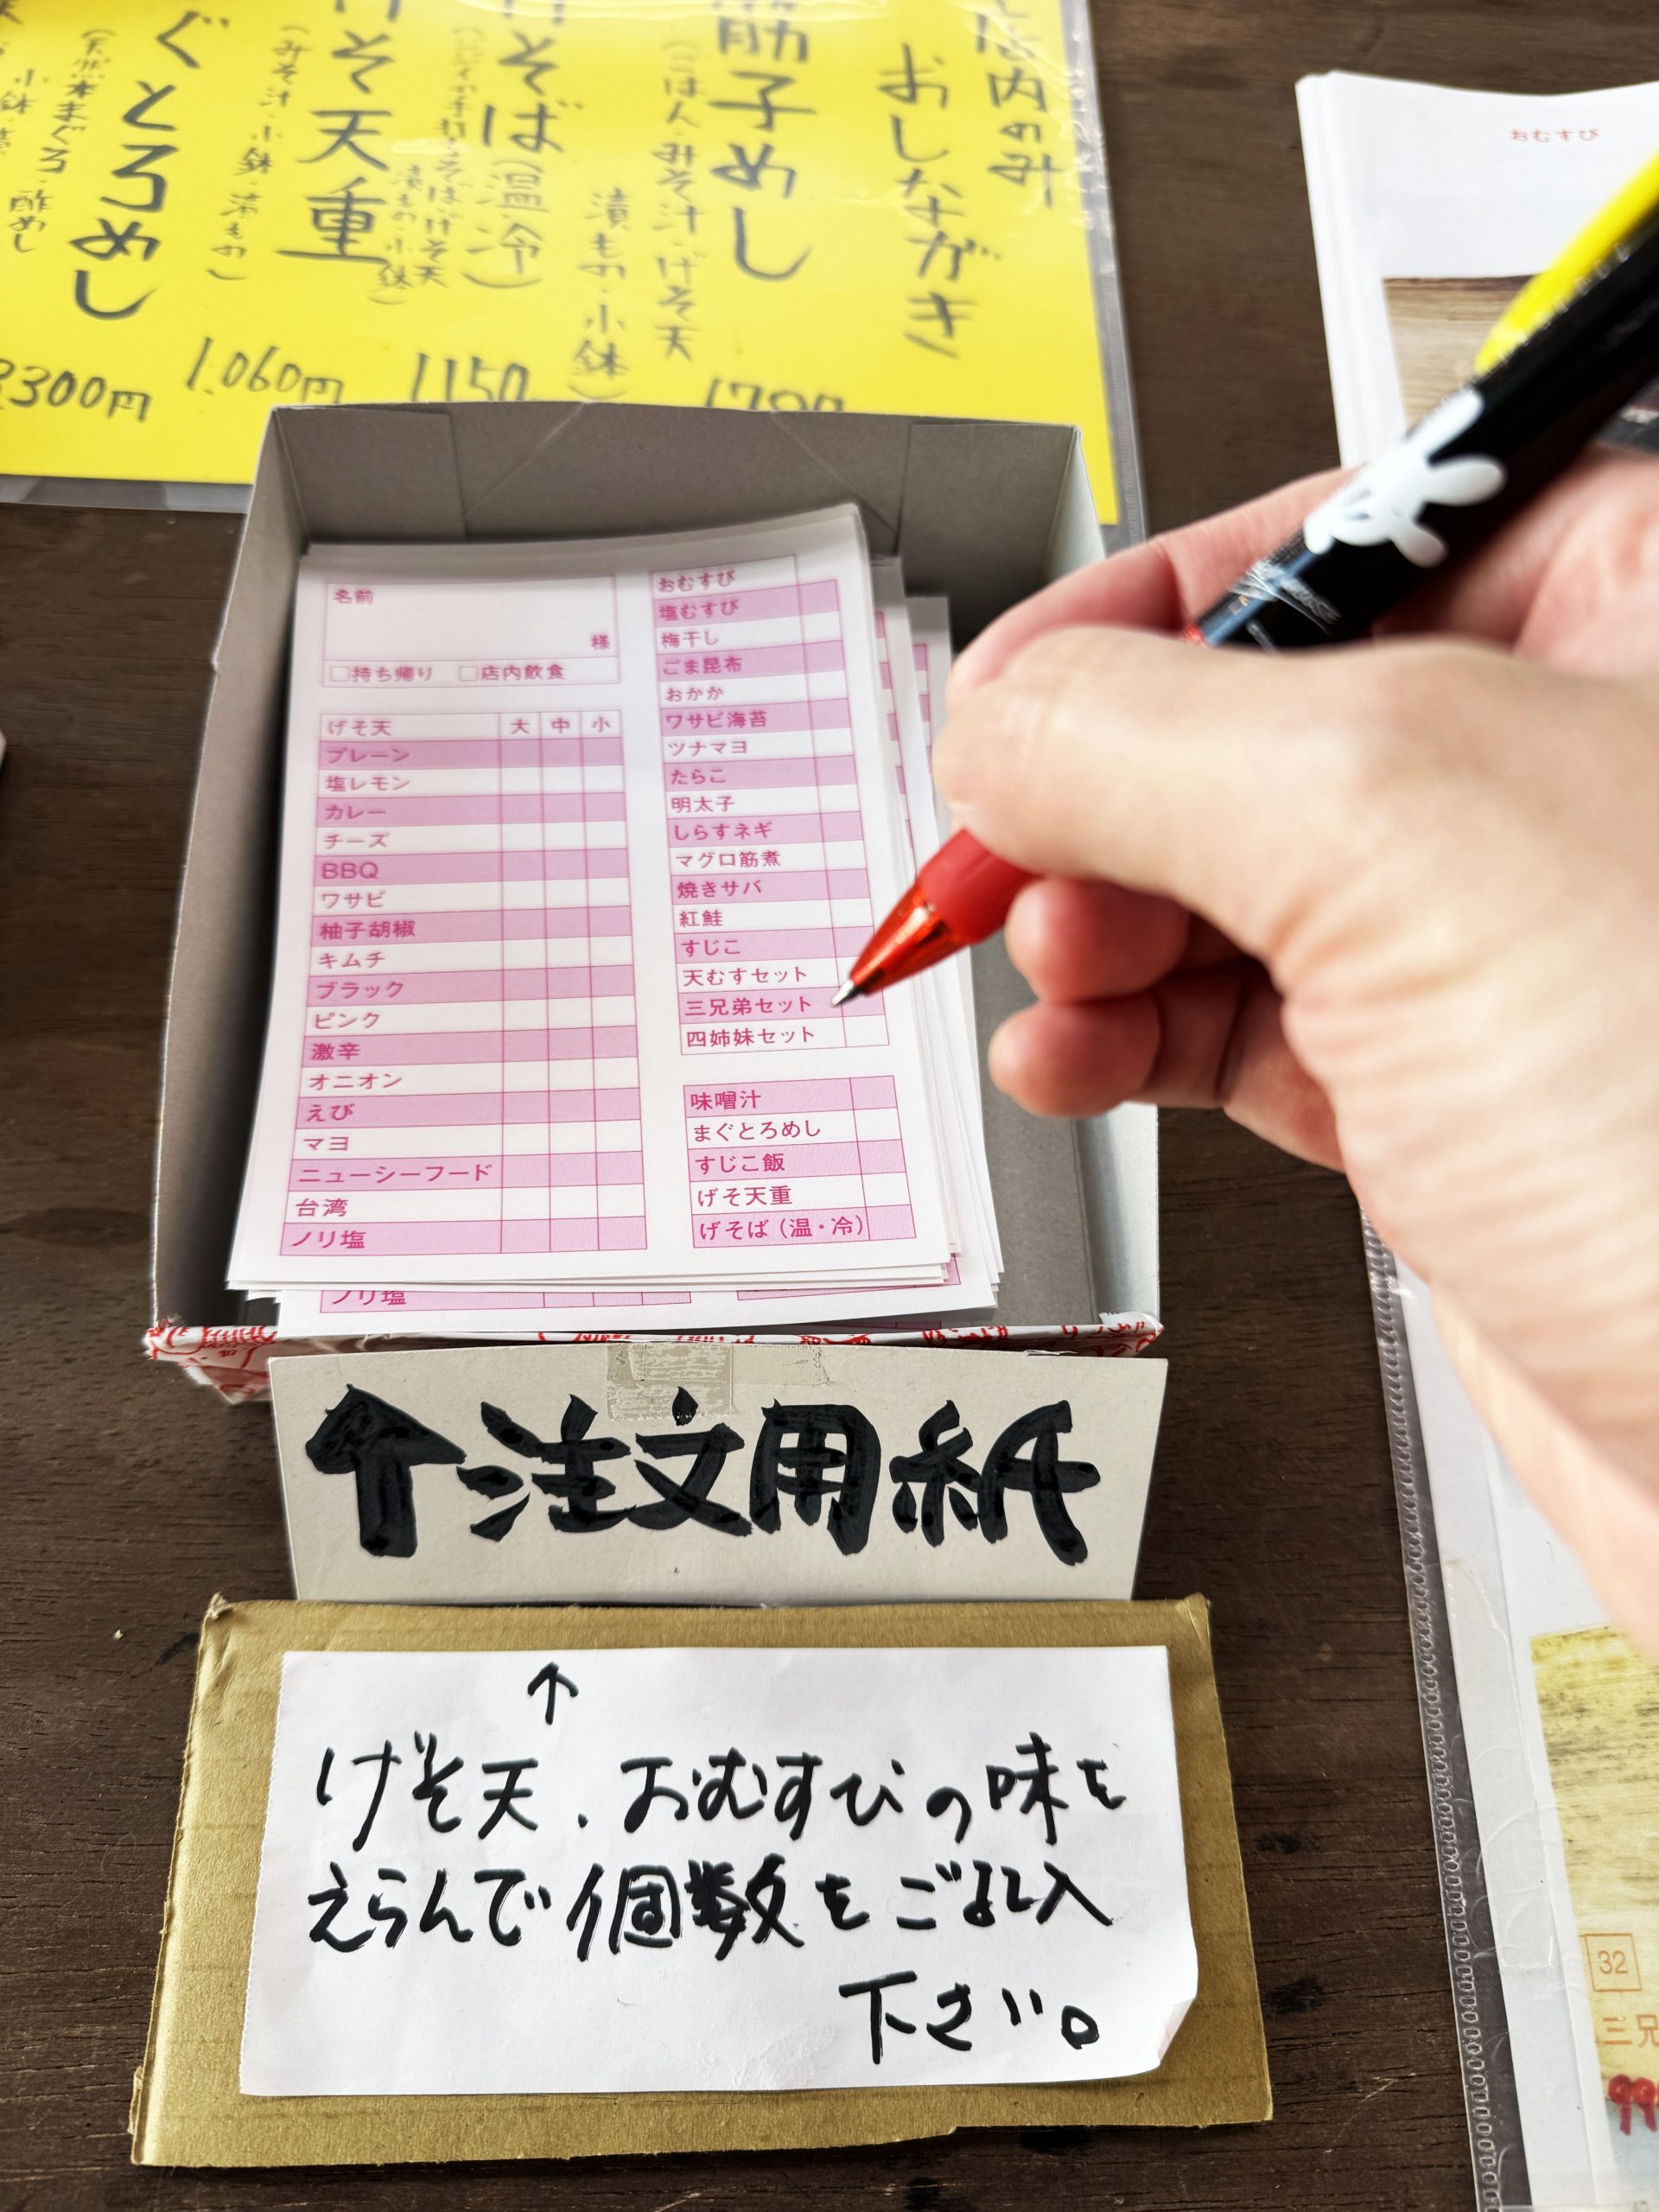 店内のみ
おしながき
筋子めし
(ごはん・みそ汁・げそ天
漬もの・小鉢)
1700
そば(温・冷)
漬もの・小鉢)
1150
そ天重
(みそ汁・小鉢・漬もの)
1,060円
ぐとろめし
(天然本まぐろ・酢めし
小鉢
3300円
おむすび
名前
様
□持ち帰り □店内飲食
げそ天 大 中 小
プレーン
塩レモン
カレー
チーズ
BBQ
ワサビ
柚子胡椒
キムチ
ブラック
ピンク
激辛
オニオン
えび
マヨ
ニューシーフード
台湾
ノリ塩
おむすび
塩むすび
梅干し
ごま昆布
おかか
ワサビ海苔
ツナマヨ
たらこ
明太子
しらすネギ
マグロ筋煮
焼きサバ
紅鮭
すじこ
天むすセット
三兄弟セット
四姉妹セット
味噌汁
まぐとろめし
すじこ飯
げそ天重
げそば(温・冷)
ノリ塩
↑注文用紙
↑
げそ天.おむすびの味を
えらんで個数をご記入
下さい。
32
三兄